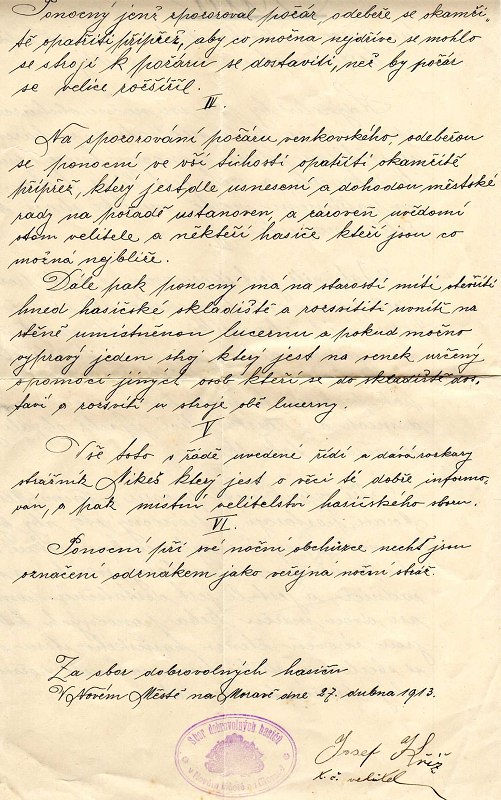 Ponocný jenž zpozoroval požár odebéře se okamži-
tě opatřiti přípřež, aby co možna nejdříve se mohlo
se stroji k požáru se dostaviti, než by požár
se velice rozšířil.
IV.
Na spozorování požáru venkovského, odebeřou
se ponocní ve vší tichosti opatřiti okamžitě
přípřež, který jest dle usnesení a dohodou městské
rady na pořadě ustanoven, a zároveň uvědomí
velitele a někteří hasiče kteří jsou co
možná nejblíže.
Dále pak ponocný má na starosti míti otevříti
hned hasičské skladiště a rozsvítiti uvnitř na
stěně umístněnou lucernu a pokud možno
vypravy jeden stroj který jest na venek určený
s pomocí jiných osob kteří se do skladiště dos-
taví a rozsvítí u stroje obě lucerny.
V
Vše toto v řádě uvedené řídí a dává rozkazy
strážník Nikeš který jest o věci té dobře informo-
ván, a pak místní velitelství hasičského sboru.
VI.
Ponocní při své noční obchůzce nechť jsou
označení odznakem jako veřejná noční stráž.
Za sbor dobrovolných hasičů
V Novém Městě na Moravě dne 27. dubna 1913.
Sbor dobrovolných hasičů
v Novém Městě na Moravě
Josef Kříž
t. č. velitel